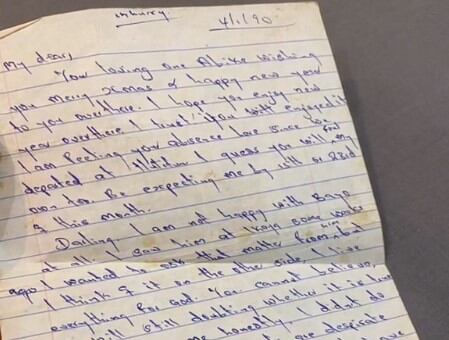 inhurry.
4/1/90
My dear,
Your loving one Abike wishing
you merry Xmas & happy new year
to you over there. I hope you enjoy new
year over there, I trust you will enjoyed it.
I am feeling your absence here since you
departed at I guess you will
own too. Be expecting me by or 22nd
of this month.
Darling I am not happy with Bayo
at all. I saw him at some weeks
ago. I wanted to ask that matter from him but
I think of it on the other side, I leave
everything for God. You cannot believe,
still doubting whether it is
me honestly. I didn't do
are desperate